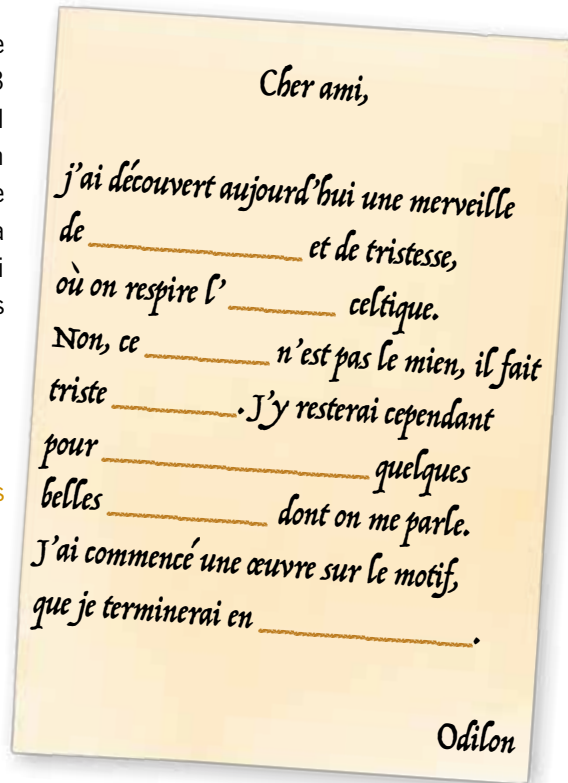 Cher ami,
j'ai découvert aujourd'hui une merveille
de ____________ et de tristesse,
où on respire l' ______ celtique.
Non, ce _______ n'est pas le mien, il fait
triste _______. J'y resterai cependant
pour _______________ quelques
belles _________ dont on me parle.
J'ai commencé une œuvre sur le motif,
que je terminerai en ____________.
Odilon